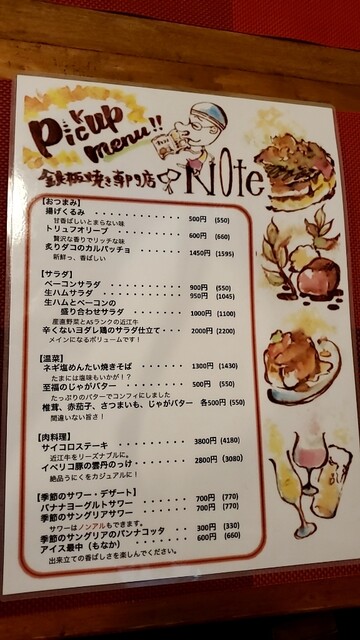 Pick up
menu!!
鉄板焼き専門店
Note
【おつまみ】
揚げくるみ ・・・・・・・・・・ 500円 (550)
甘香ばしいとまらない味
トリュフオリーブ ・・・・・・・ 600円 (660)
贅沢な香りでリッチな味
炙りダコのカルパッチョ ・・・・ 1450円 (1595)
新鮮っ、香ばしい
【サラダ】
ベーコンサラダ ・・・・・・・・ 900円 (550)
生ハムサラダ ・・・・・・・・・ 950円 (1045)
生ハムとベーコンの
盛り合わせサラダ ・・・・・ 1000円 (1100)
産直野菜とA5ランクの近江牛
辛くないヨダレ鶏のサラダ仕立て・・・ 2000円 (2200)
メインになるボリュームです！
【温菜】
ネギ塩めんたい焼きそば ・・・・ 1300円 (1430)
たまには塩味もいかが！？
至福のじゃがバター ・・・・・・ 500円 (550)
たっぷりのバターでコンフィにしました
椎茸、赤茄子、さつまいも、じゃがバター 各500円 (550)
間違いない旨さ！
【肉料理】
サイコロステーキ ・・・・・・・ 3800円 (4180)
近江牛をリーズナブルに。
イベリコ豚の雲丹のっけ・・・・・ 2800円 (3080)
絶品うにくをカジュアルに！
【季節のサワー・デザート】
バナナヨーグルトサワー ・・・・ 700円 (770)
季節のサングリアサワー ・・・・ 700円 (770)
サワーはノンアルもできます。
季節のサングリアのパンナコッタ ・・ 300円 (330)
アイス最中（もなか） ・・・・・ 600円 (660)
出来立ての香ばしさを楽しんでください。